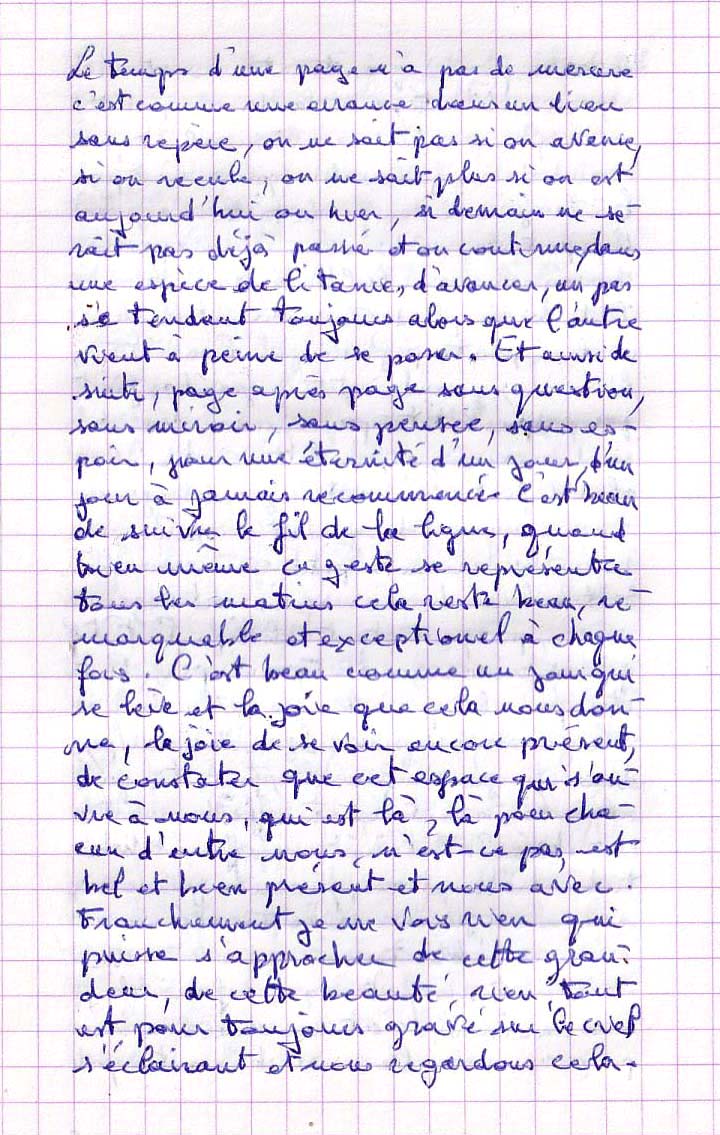 Le temps d'une page n'a pas de mesure
c'est comme une errance dans un lieu
sans repère, on ne sait pas si on avance,
si on recule, on ne sait plus si on est
aujourd'hui ou hier, si demain ne se-
rait pas déjà passé et on continue, dans
une espèce de litanie, d'avancer, un pas
se tendant toujours alors que l'autre
vient à peine de se poser. Et ainsi de
suite, page après page sans question,
sans miroir, sans pensée, sans es-
poir, pour une éternité d'un jour, d'un
jour à jamais recommencé. C'est beau
de suivre le fil de la ligne, quand
bien même ce geste se représente
tous les matins cela reste beau, re-
marquable et exceptionnel à chaque
fois. C'est beau comme un jour qui
se lève et la joie que cela nous don-
ne, la joie de se voir encore présent,
de constater que cet espace qui s'ou-
vre à nous, qui est là, là pour cha-
cun d'entre nous, n'est-ce pas, est
bel et bien présent et nous avec.
Franchement je ne vois rien qui
puisse s'approcher de cette gran-
deur, de cette beauté, rien, tout
est pour toujours gravé sur le ciel
s'éclairant et nous regardons cela.